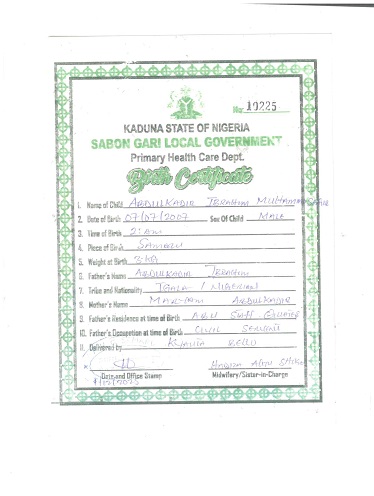 No: 19225
KADUNA STATE OF NIGERIA
SABON GARI LOCAL GOVERNMENT
Primary Health Care Dept.
Birth Certificate
1. Name of Child ABDULKADIR IBRAHIM
2. Date of Birth 07/07/2007 Sex Of Child MALE
3. Time of Birth 2: am
4. Place of Birth SAMARU
5. Weight at Birth 3kg
6. Father's Name ABDULKADIR IBRAHIM
7. Tribe and Nationality IGALA / NIGERIAN
8. Mother's Name ABDULKADIR
9. Father's Residence at time of Birth A.B.U STAFF QUARTERS
10. Father's Occupation at time of Birth CIVIL SERVANT
11. Delivered by BELLO
HADIZA
Date and Office Stamp Midwifery/Sister-in-Charge